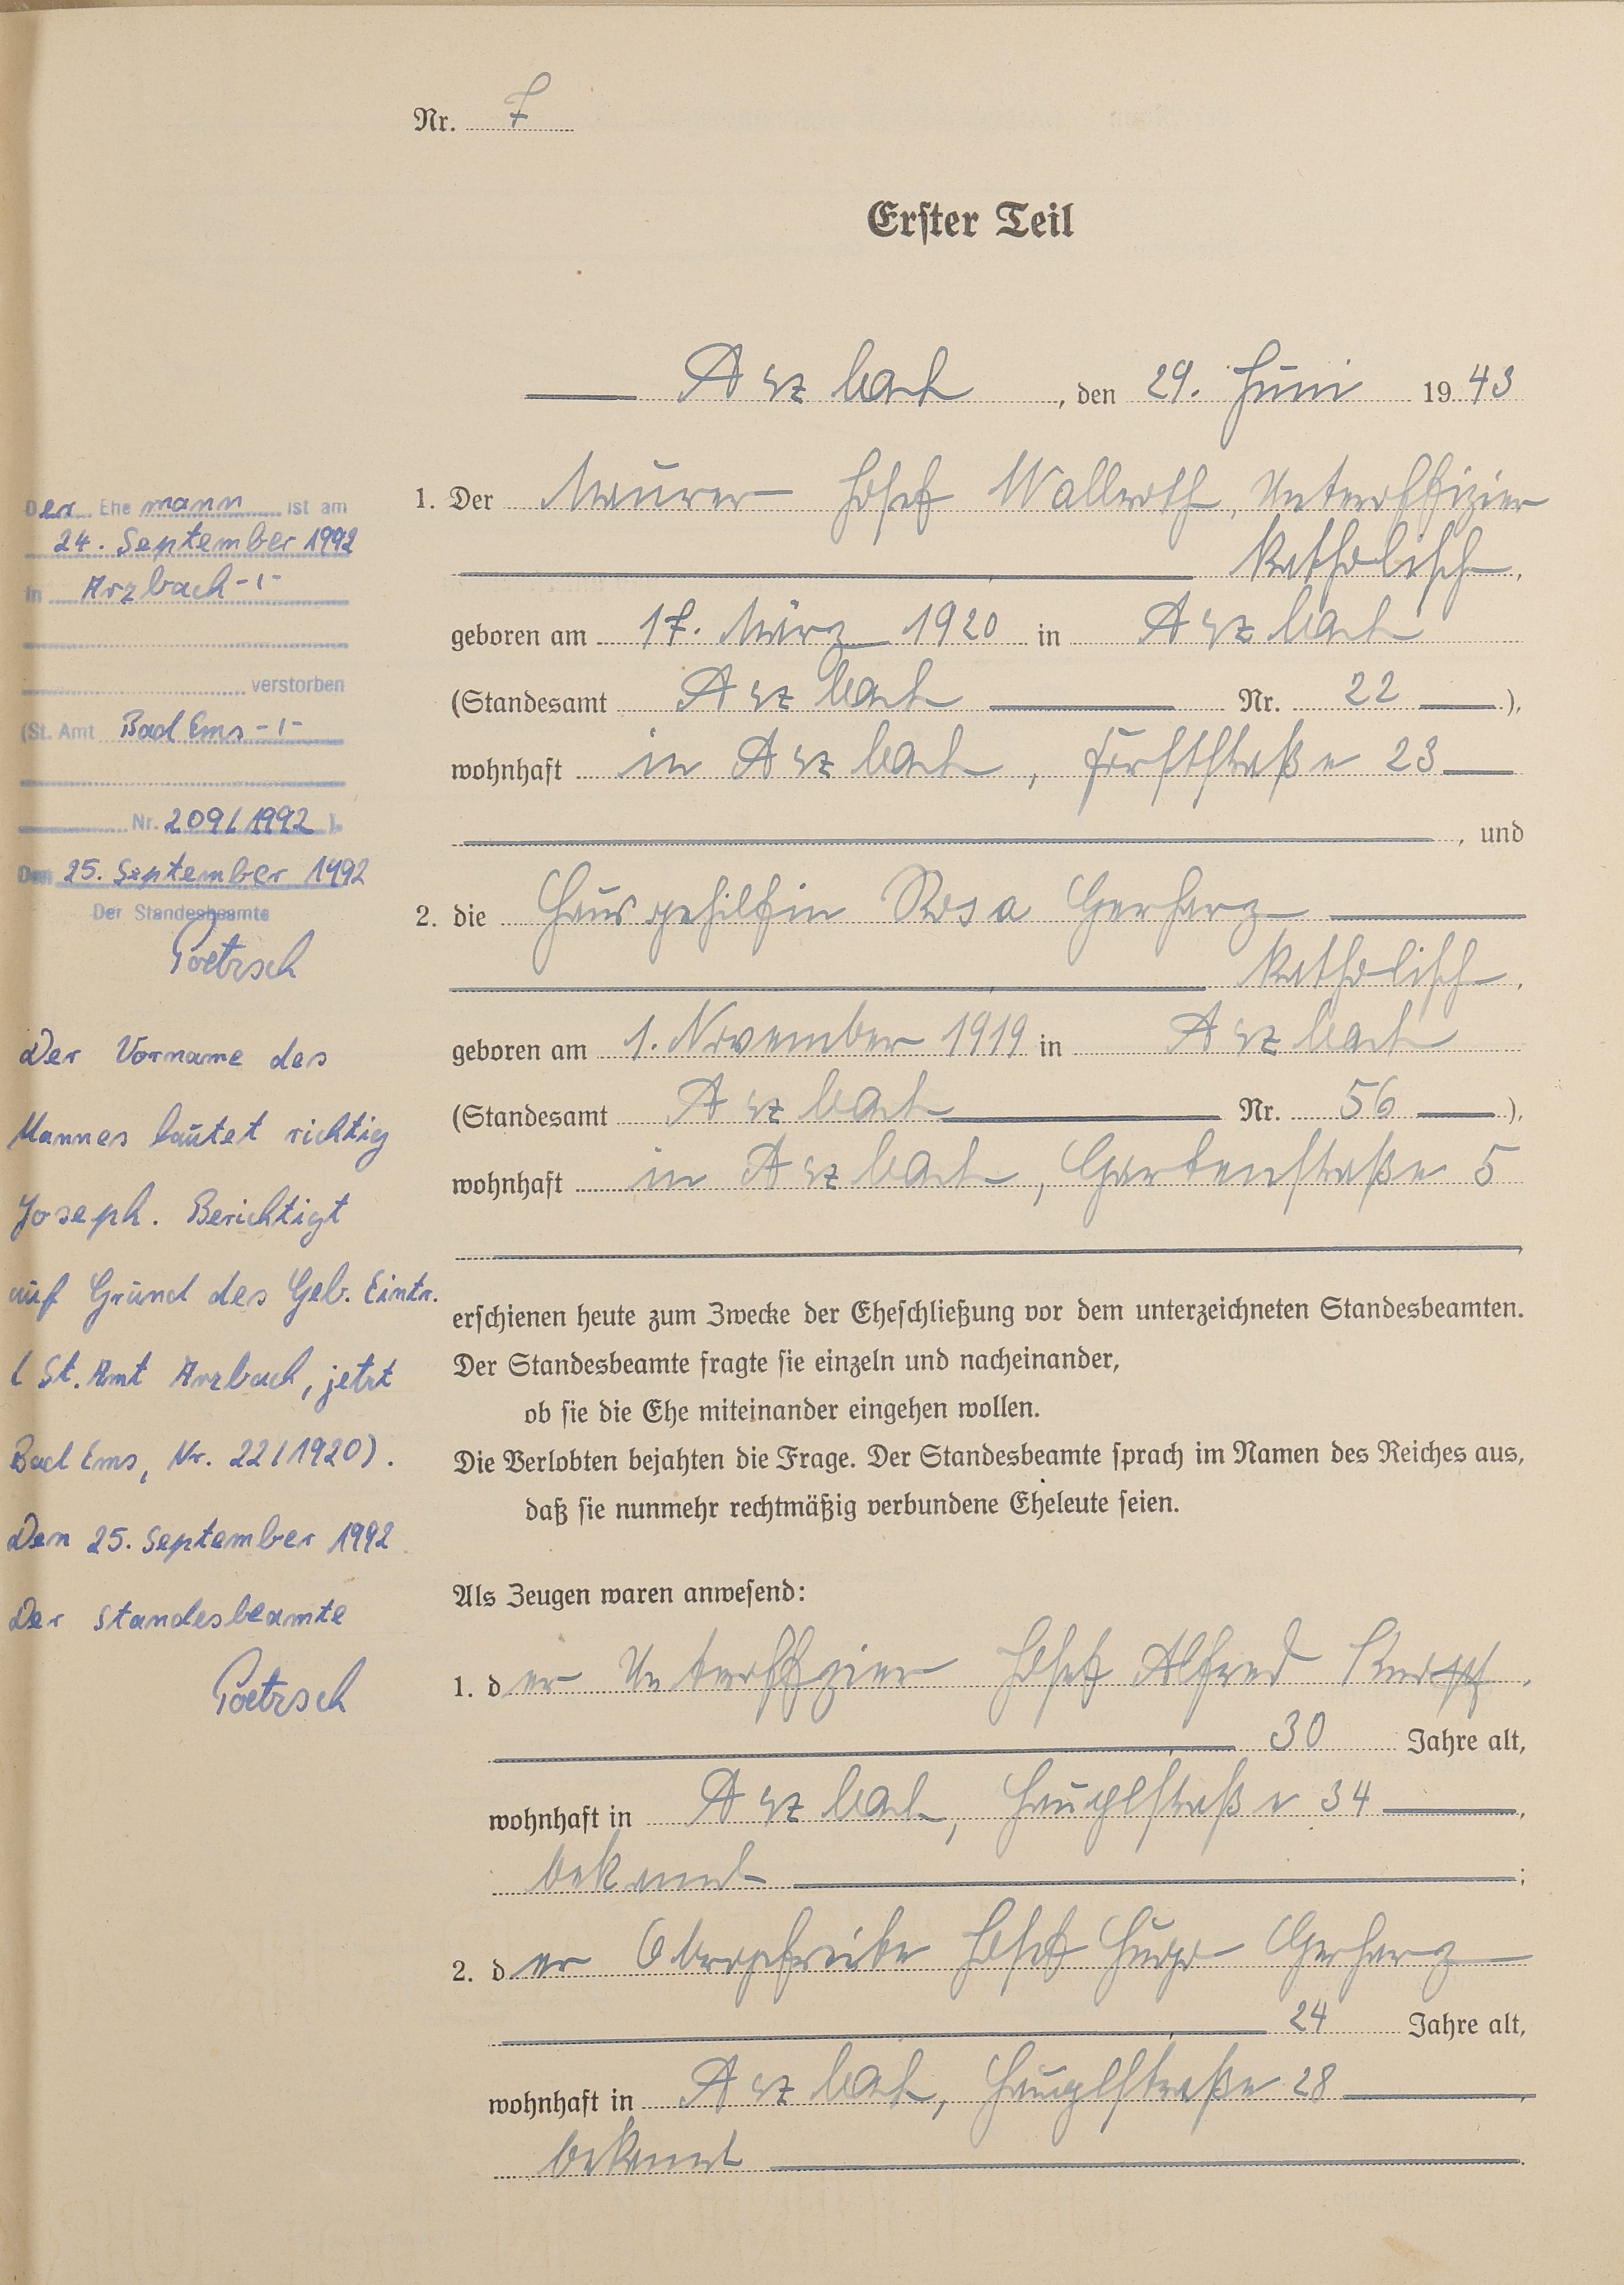 Nr. 7
Erster Teil
Arzbach, den 29. Juni 1943
1. Der Maurer Josef Wallroth, Unteroffizier
katholisch,
geboren am 17. März 1920 in Arzbach
(Standesamt Arzbach Nr. 22),
wohnhaft in Arzbach, Forststraße 23
, und
2. die Hausgehilfin Rosa Gerharz
katholisch,
geboren am 1. November 1919 in Arzbach
(Standesamt Arzbach Nr. 56),
wohnhaft in Arzbach, Gartenstraße 5
erschienen heute zum Zwecke der Eheschließung vor dem unterzeichneten Standesbeamten.
Der Standesbeamte fragte sie einzeln und nacheinander,
ob sie die Ehe miteinander eingehen wollen.
Die Verlobten bejahten die Frage. Der Standesbeamte sprach im Namen des Reiches aus,
daß sie nunmehr rechtmäßig verbundene Eheleute seien.
Als Zeugen waren anwesend:
1. der Unteroffizier Josef Alfred
30 Jahre alt,
wohnhaft in Arzbach, Hauptstraße 34,
bekannt;
2. der Obergefreite Josef Hugo Gerharz
24 Jahre alt,
wohnhaft in Arzbach, Hauptstraße 28,
bekannt.
Der Ehemann ist am
24. September 1992
in Arzbach -/-
verstorben
(St. Amt Bad Ems -/-
Nr. 209/1992).
Den 25. September 1992
Der Standesbeamte
Poetzsch
Der Vorname des
Mannes lautet richtig
Joseph. Berichtigt
auf Grund des Geb. Eintr.
(St. Amt Arzbach, jetzt
Bad Ems, Nr. 22/1920).
Den 25. September 1992
Der Standesbeamte
Poetzsch